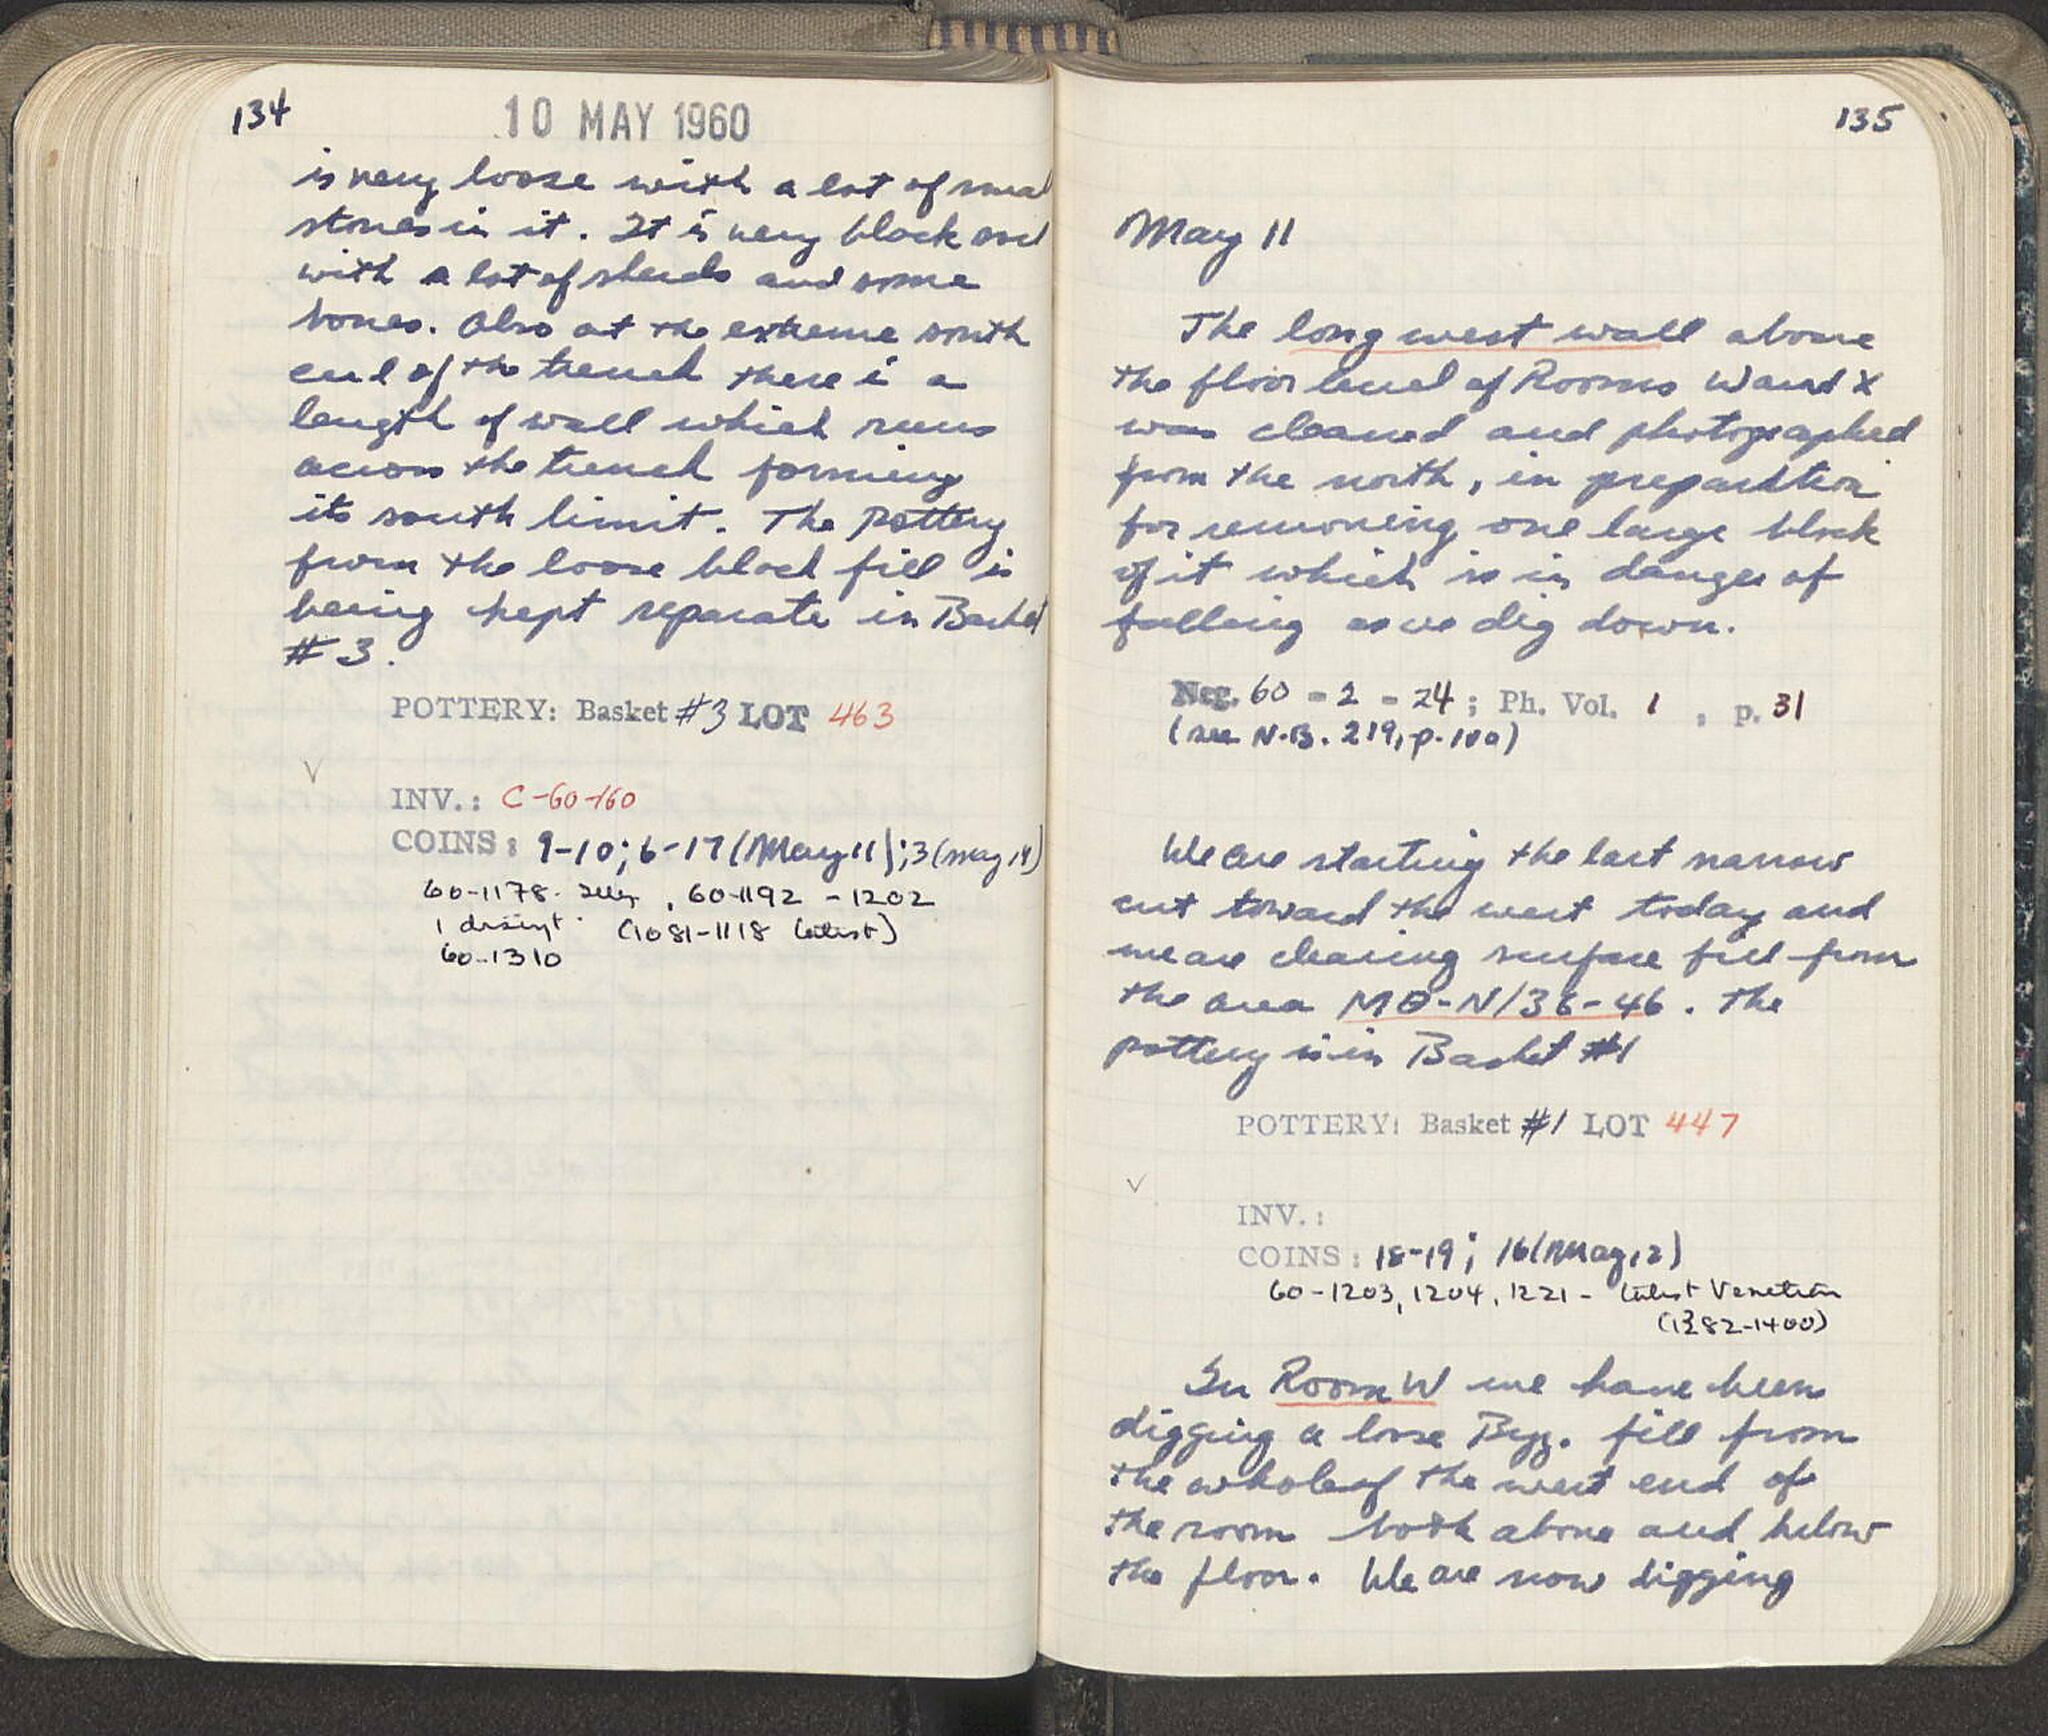 134
10 MAY 1960
is very loose with a lot of small
stones in it. It is very black and
with a lot of sherds and some
bones. Also at the extreme south
end of the trench there is a
length of wall which runs
across the trench forming
its south limit. The pottery
from the loose black fill is
being kept separate in Basket
#3.
POTTERY: Basket #3 LOT 463
INV.: C-60-160
COINS: 9-10; 6-17 (May 11); 3 (May 14)
60-1178- , 60-1192 - 1202
1 disint. (1081-1118 latest)
60-1310
135
May 11
The long west wall above
the floor level of Rooms W and X
was cleaned and photographed
from the north, in preparation
for removing one large block
of it which is in danger of
falling as we dig down.
Neg. 60 - 2 - 24; Ph. Vol. 1, p. 31
(see N.B. 219, p. 100)
We are starting the last narrow
cut toward the west today and
we are clearing surface fill from
the area MΘ-N/36-46. The
pottery is in Basket #1
POTTERY: Basket #1 LOT 447
INV.:
COINS: 18-19; 16 (May 12)
60-1203, 1204, 1221 - latest Venetian
(1382-1400)
In Room W we have been
digging a loose Byz. fill from
the whole of the west end of
the room both above and below
the floor. We are now digging